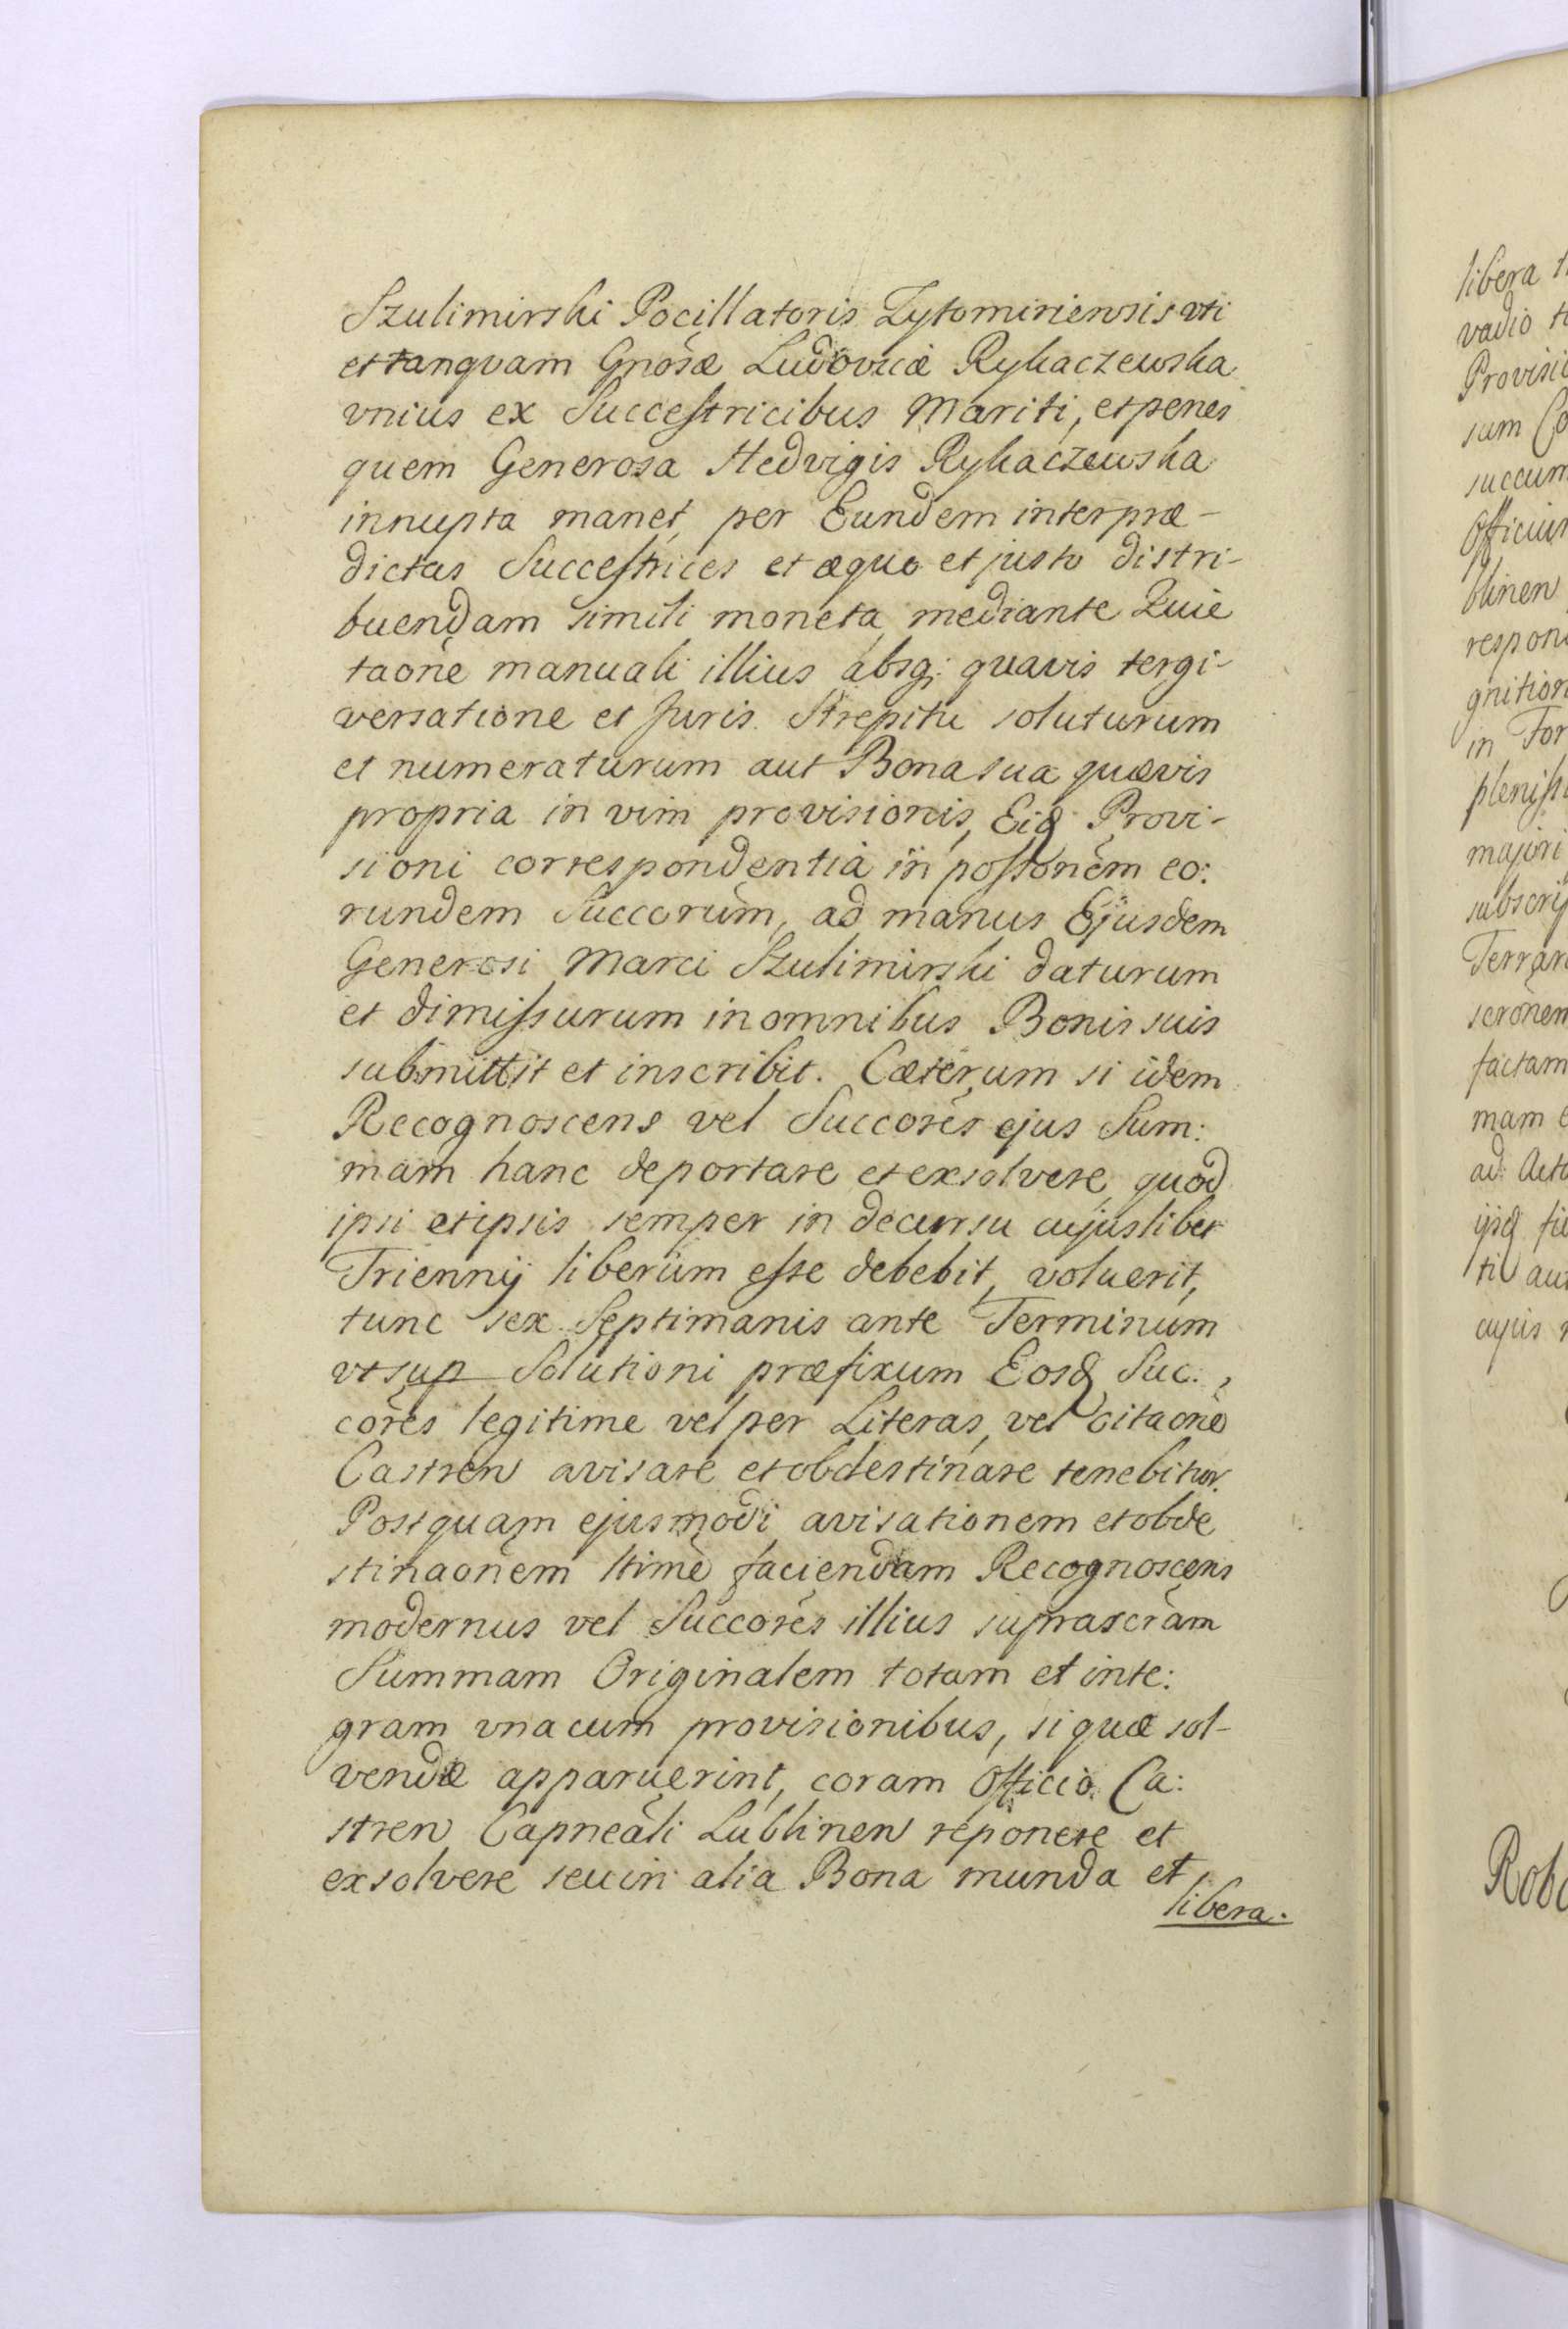 Szulimirski Pocillatoris Zytomiriensis vti
et tanquam Gnosæ Ludovicæ Rykaczewska
vnius ex Succestricibus Mariti, et penes
quem Generosa Hedvigis Rykaczewska
innupta manet, per Eundem interpræ-
dictas Succestrices et æquo et justo distri-
buendam simili moneta mediante Quie
taone manuali illius absq; quavis tergi-
versatione et Juris Strepitu soluturum
et numeraturum aut Bona sua quævis
propria in vim provisionis, Eidq Provi-
sioni correspondentia in possonem eo:
rundem Succorum, ad manus Ejusdem
Generosi Marci Szulimirski daturum
et dimissurum in omnibus Bonis suis
submittit et inscribit. Cæterum si idem
Recognoscens vel Succores ejus Sum:
mam hanc deportare et exsolvere, quod
ipsi et ipsis semper in decursu cujuslibet
Triennij liberum esse debebit, voluerit,
tunc sex Septimanis ante Terminum
vt sup Solutioni præfixum Eosd Suc:
cores legitime vel per Literas, vel citaone
Castren avisare et obdestinare tenebitur.
Postquam ejusmodi avisationem et obde
stinaonem ltime faciendam Recognoscens
modernus vel Succores illius suprascram
Summam Originalem totam et inte:
gram vnacum provisionibus, si quæ sol-
vendæ apparuerint, coram Officio Ca:
stren Capneali Lublinen reponere et
exsolvere seu in alia Bona munda et
libera.
libera
vadio
Provisi
sum
succum
Officium
blinen
respon
gnition
in For
pleniss
majori
subscrip
Terrar
scronem
factam
mam
ad Acta
ijsd
cujus
Robo